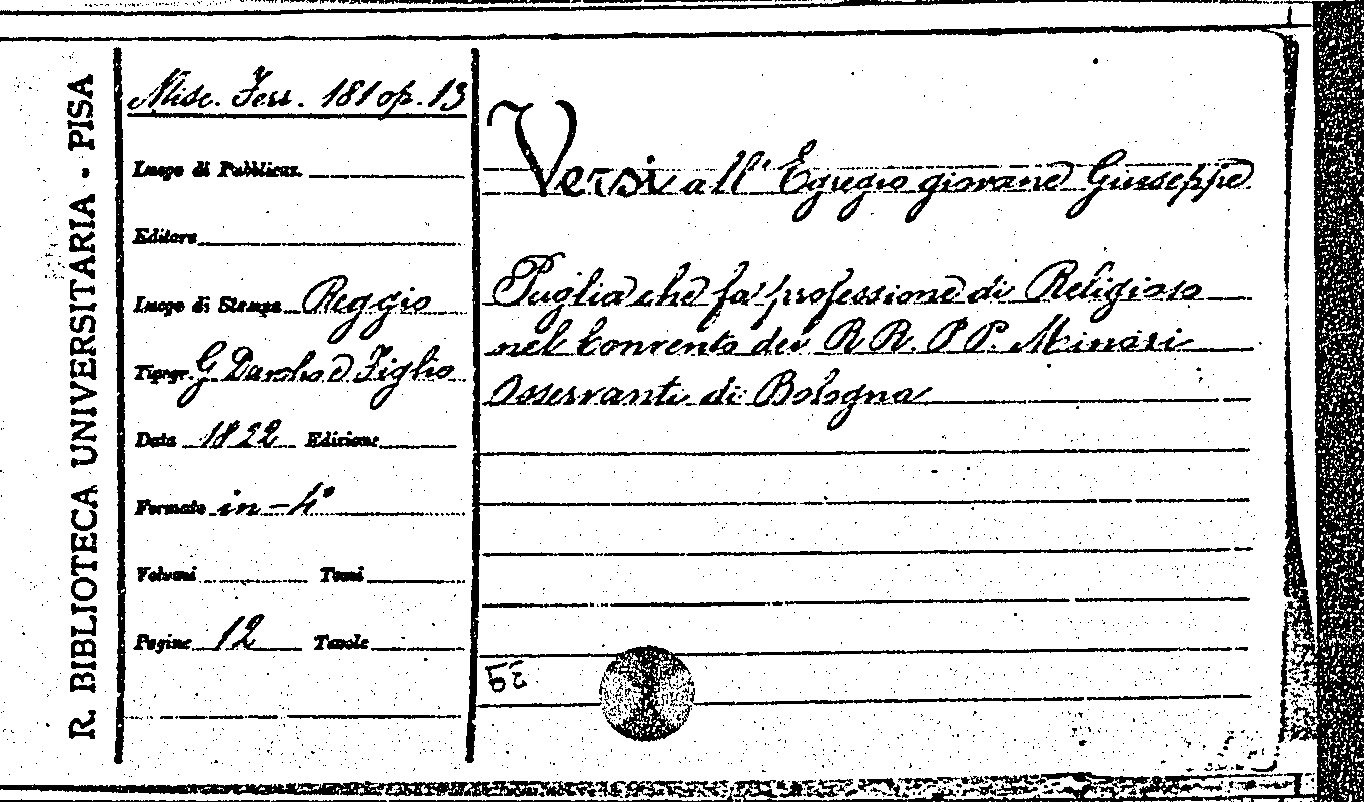 R. BIBLIOTECA UNIVERSITARIA - PISA
Misc. Ferr. 181 op. 13
Luogo di Pubblicaz.
Editore
Luogo di Stampa Reggio
Tipogr. G e Figlio
Data 1822 Edizione
Formato in-4°
Volumi Tomi
Pagine 12 Tavole
Versi all'Egregio giovane Giuseppe
Puglia che fa professione di Religioso
nel Convento dei RR. PP. Minori
Osservanti di Bologna